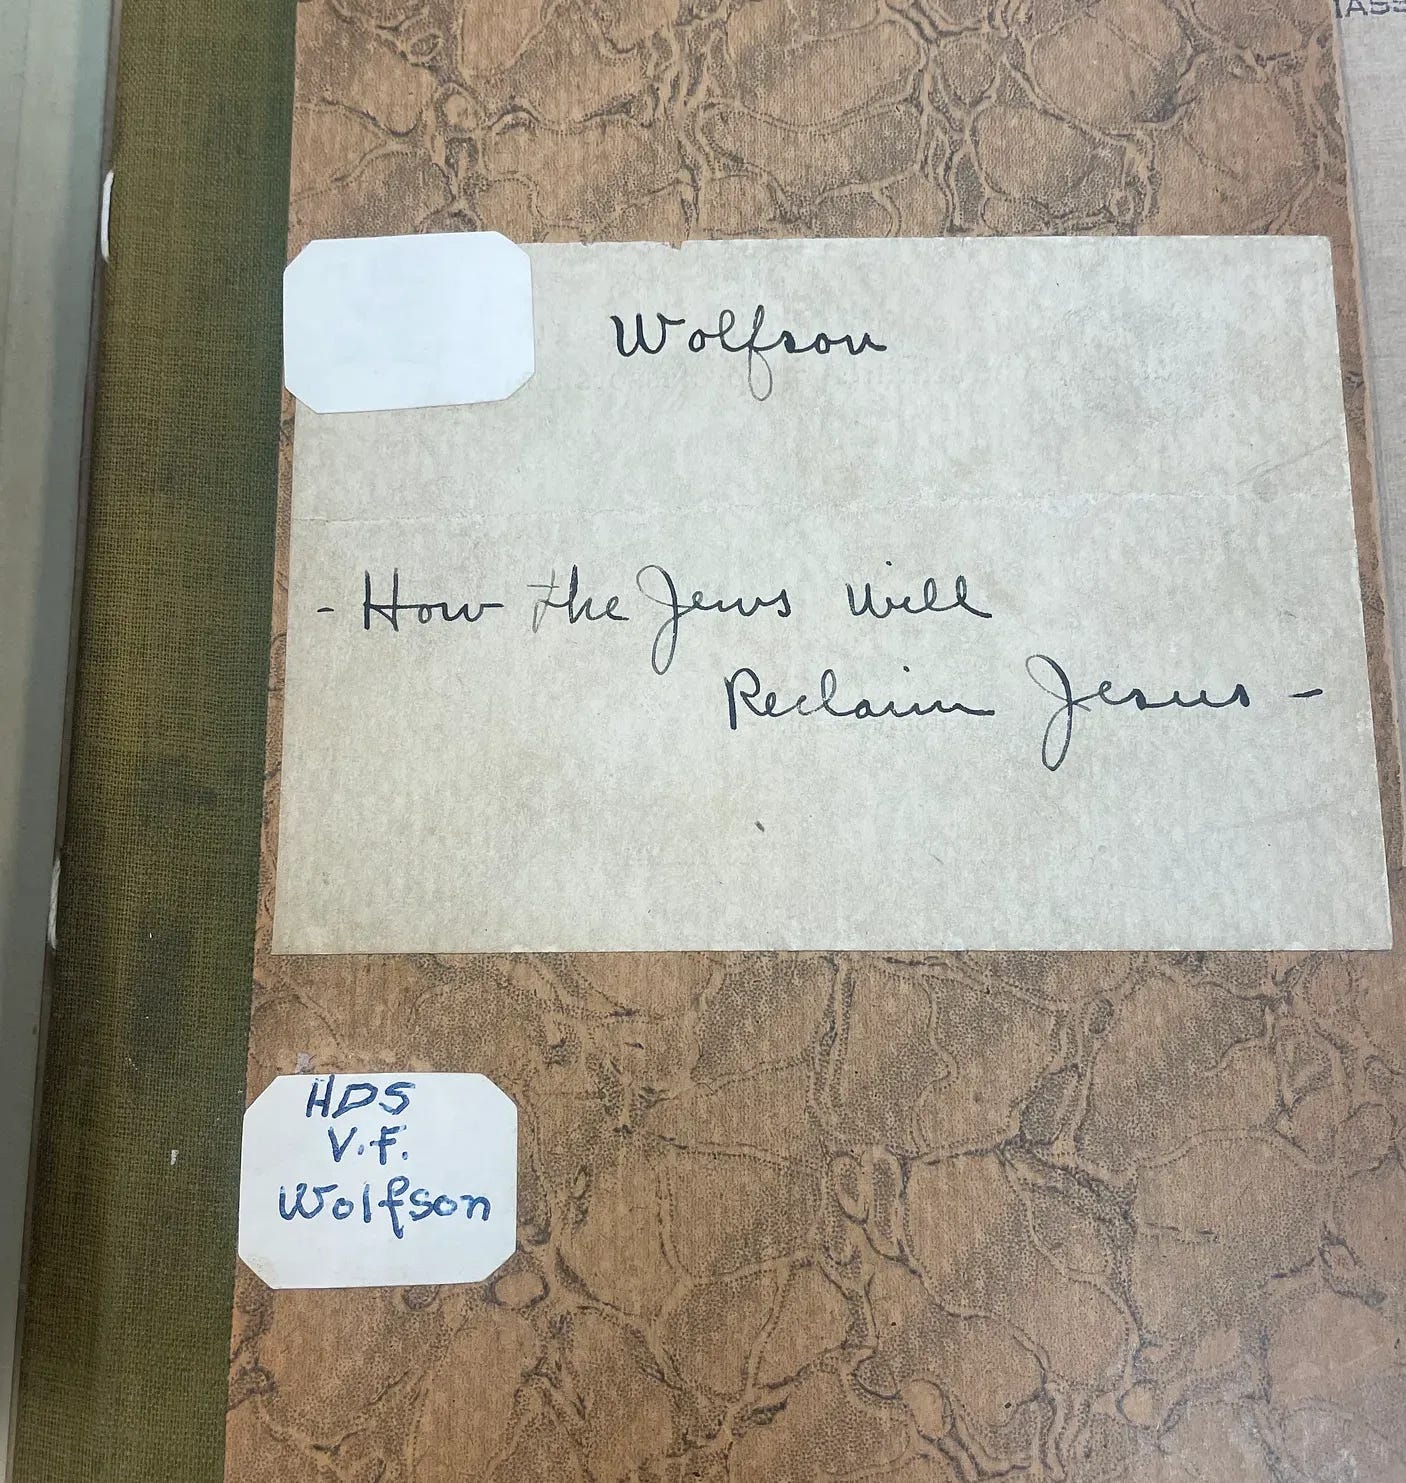 Wolfson
- How the Jews Will
Reclaim Jesus -
HDS
V.F.
Wolfson